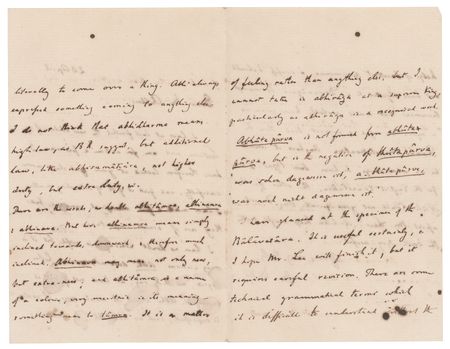 literally to come over a thing. Abhi always
expressed something coming to anything else
I do not think that abhidharma means
high law, as B R suggest, but additional
law, like abhisamâcârika, not higher
duty, but extra duty,
There are the words, no doubt abhitâmra, abhinamra
& abhinava. But here abhinamra means simply
inclined towards, downward, & therefore much
inclined. Abhinava may mean not only new,
but extra-new; and abhitâmra, as a name
of a colour, may maintain in its meaning
something near to tâmra. It is a matter
of feeling rather than anything else, but I
cannot take in abhirâja as a supreme king
particularly as adhirâja is a recognised word.
Abhûtapûrva is not formed from abhûta+
pûrva, but is the negation of bhûtapûrva,
was schon dagewesen ist, a-bhûtapûrva,
was noch nicht dagewesen ist.
I have glanced at the specimen of the
Bâlâvatâra. It is useful certainly, &
I hope Mr. Lee will finish it, but it
requires careful revision. There are some
technical grammatical terms which
it is difficult to understand